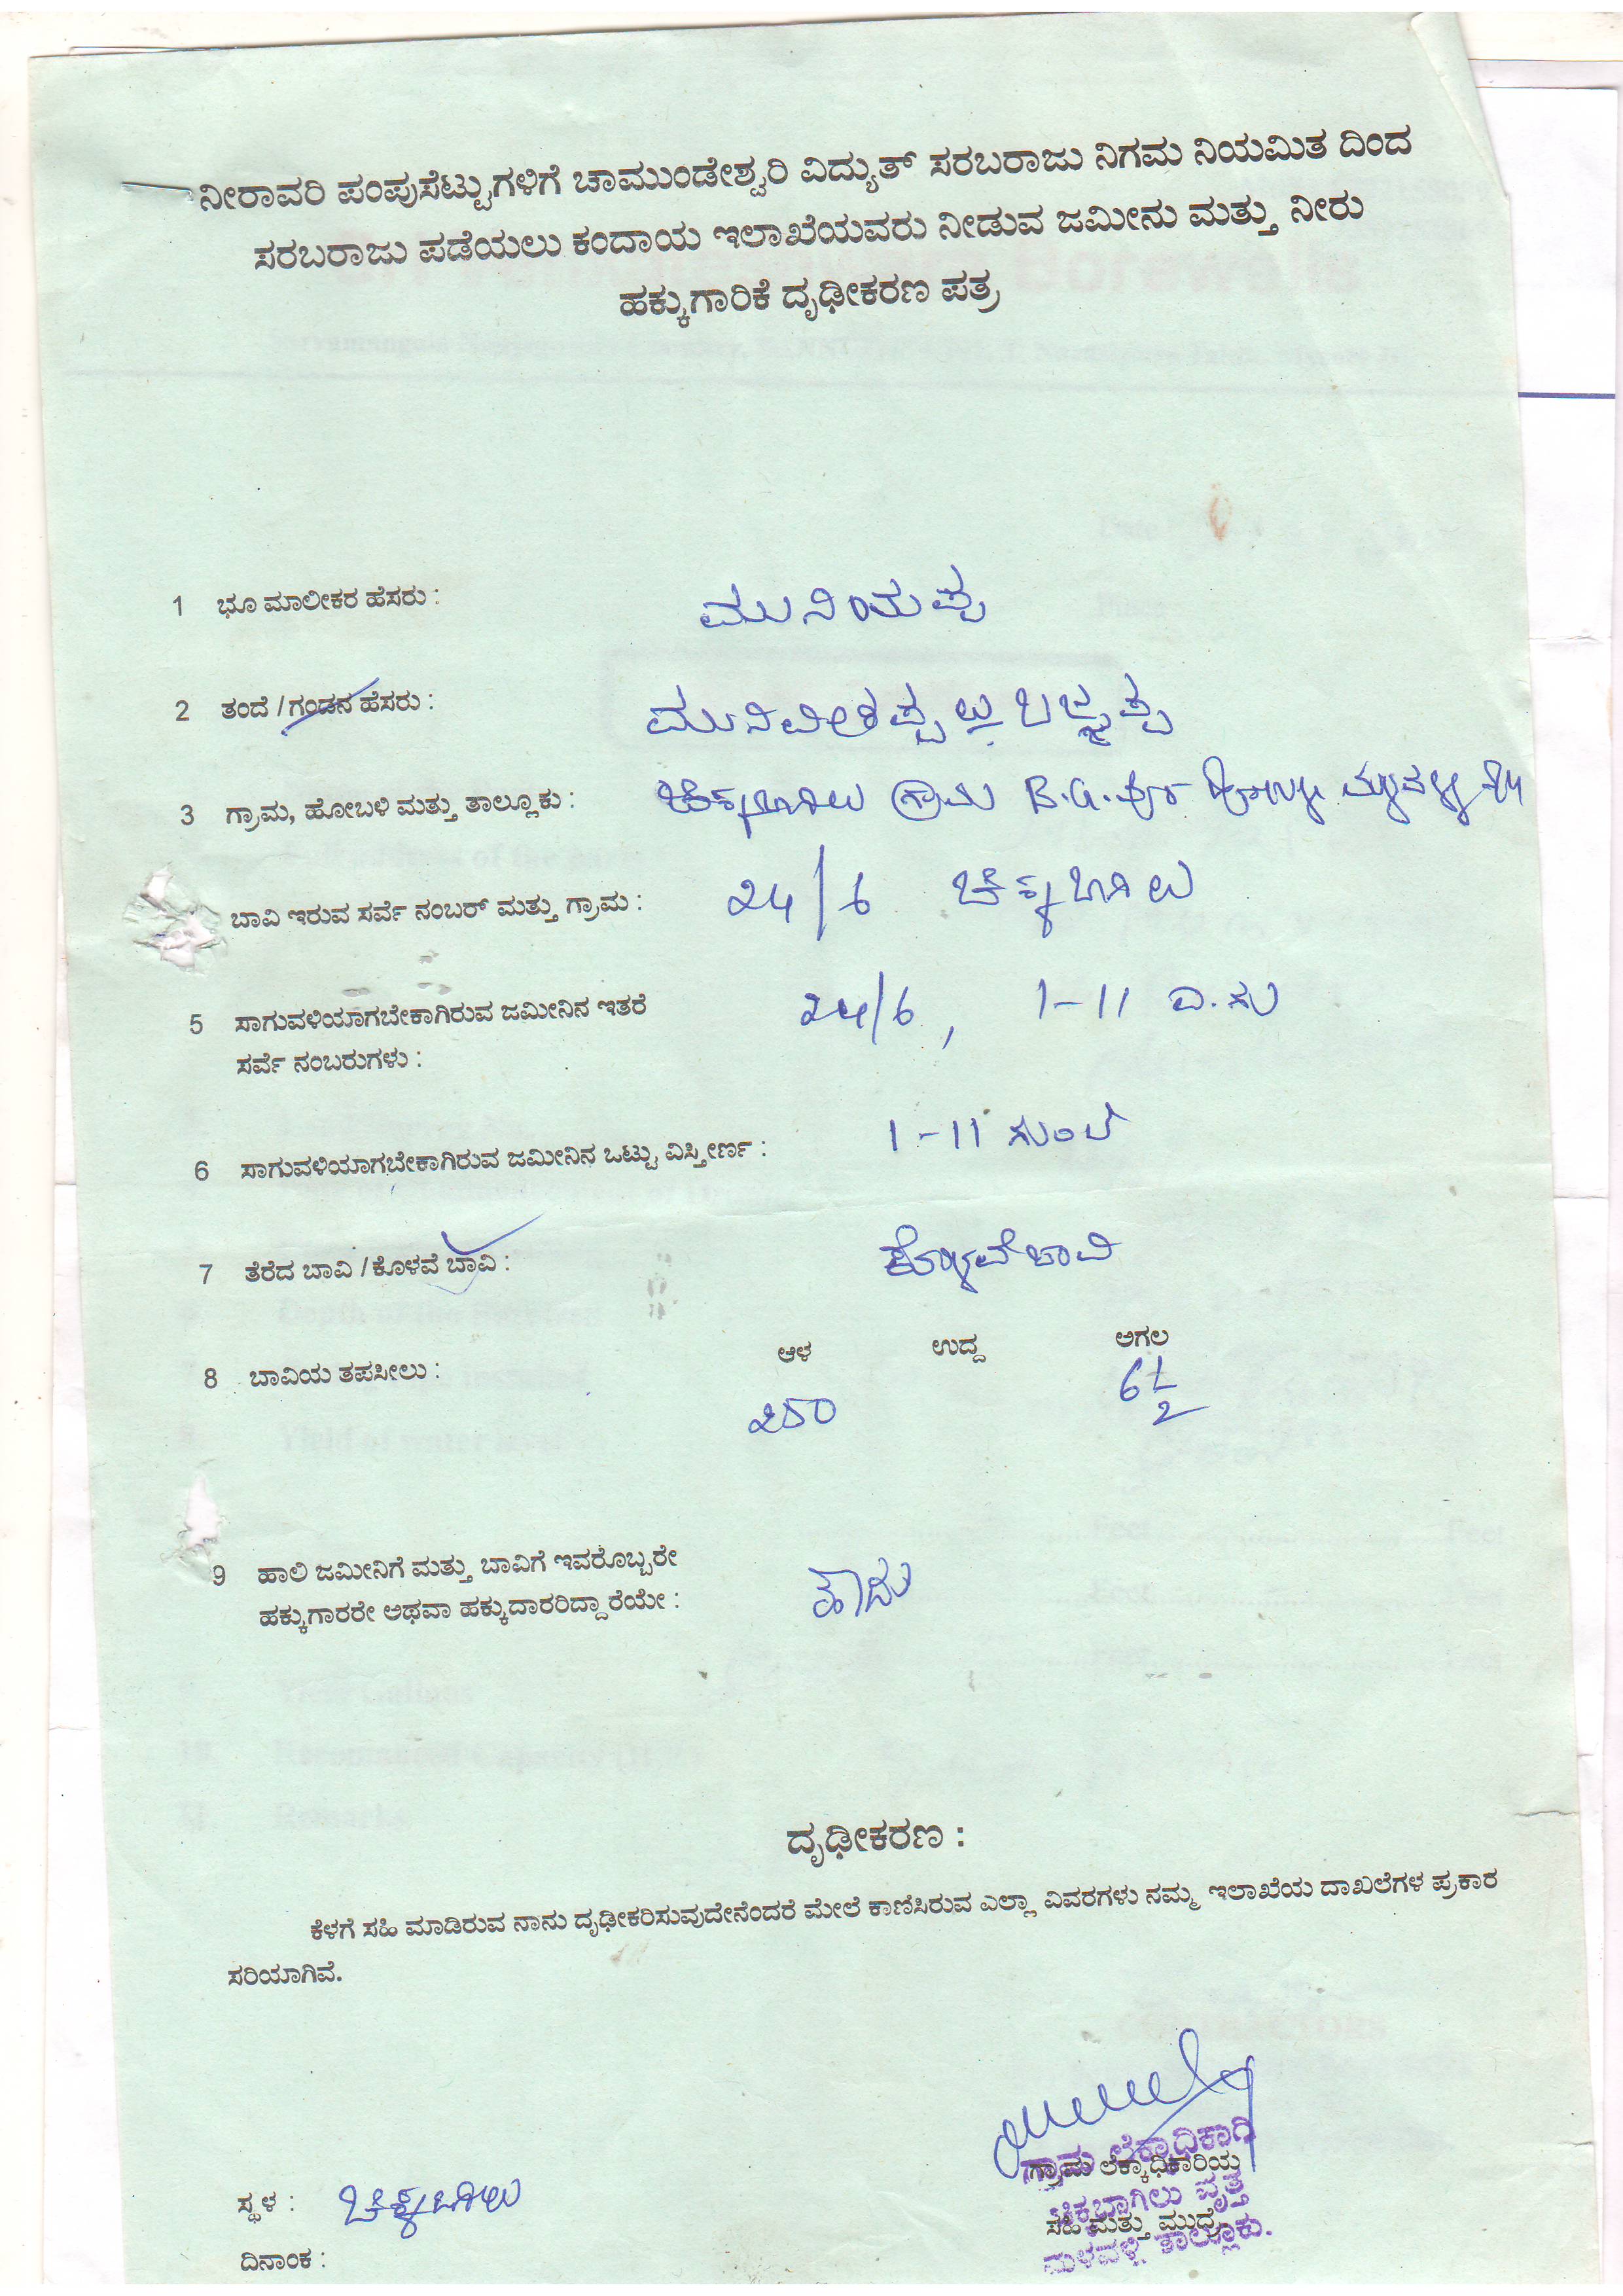 ನೀರಾವರಿ ಪಂಪುಸೆಟ್ಟುಗಳಿಗೆ ಚಾಮುಂಡೇಶ್ವರಿ ವಿದ್ಯುತ್ ಸರಬರಾಜು ನಿಗಮ ನಿಯಮಿತ ದಿಂದ
ಸರಬರಾಜು ಪಡೆಯಲು ಕಂದಾಯ ಇಲಾಖೆಯವರು ನೀಡುವ ಜಮೀನು ಮತ್ತು ನೀರು
ಹಕ್ಕುಗಾರಿಕೆ ದೃಢೀಕರಣ ಪತ್ರ
1 ಭೂ ಮಾಲೀಕರ ಹೆಸರು : ಮುನಿಯಪ್ಪ
2 ತಂದೆ / ಗಂಡನ ಹೆಸರು :
3 ಗ್ರಾಮ, ಹೋಬಳಿ ಮತ್ತು ತಾಲ್ಲೂಕು : ಗ್ರಾಮ B.G.ಪುರ
ಬಾವಿ ಇರುವ ಸರ್ವೆ ನಂಬರ್ ಮತ್ತು ಗ್ರಾಮ : 24/6 ಚಿಕ್ಕಬಾಗಿಲು
5 ಸಾಗುವಳಿಯಾಗಬೇಕಾಗಿರುವ ಜಮೀನಿನ ಇತರೆ 24/6, 1-11 ಎ.ಗು
ಸರ್ವೆ ನಂಬರುಗಳು :
6 ಸಾಗುವಳಿಯಾಗಬೇಕಾಗಿರುವ ಜಮೀನಿನ ಒಟ್ಟು ವಿಸ್ತೀರ್ಣ : 1-11 ಗುಂಟೆ
7 ತೆರೆದ ಬಾವಿ / ಕೊಳವೆ ಬಾವಿ : ಕೊಳವೆ ಬಾವಿ
ಆಳ ಉದ್ದ ಅಗಲ
8 ಬಾವಿಯ ತಪಸೀಲು : 250 6 1/2
9 ಹಾಲಿ ಜಮೀನಿಗೆ ಮತ್ತು ಬಾವಿಗೆ ಇವರೊಬ್ಬರೇ
ಹಕ್ಕುಗಾರರೇ ಅಥವಾ ಹಕ್ಕುದಾರರಿದ್ದಾರೆಯೇ : ಹೌದು
ದೃಢೀಕರಣ :
ಕೆಳಗೆ ಸಹಿ ಮಾಡಿರುವ ನಾನು ದೃಢೀಕರಿಸುವುದೇನೆಂದರೆ ಮೇಲೆ ಕಾಣಿಸಿರುವ ಎಲ್ಲಾ ವಿವರಗಳು ನಮ್ಮ ಇಲಾಖೆಯ ದಾಖಲೆಗಳ ಪ್ರಕಾರ
ಸರಿಯಾಗಿವೆ.
ಗ್ರಾಮ ಲೆಕ್ಕಾಧಿಕಾರಿ
ಗ್ರಾಮ ಲೆಕ್ಕಾಧಿಕಾರಿಯ
ಚಿಕ್ಕಬಾಗಿಲು ವೃತ್ತ
ಸ್ಥಳ : ಚಿಕ್ಕಬಾಗಿಲು
ಸಹಿ ಮತ್ತು ಮುದ್ರೆ
ಮಳವಳ್ಳಿ ತಾಲ್ಲೂಕು.
ದಿನಾಂಕ :